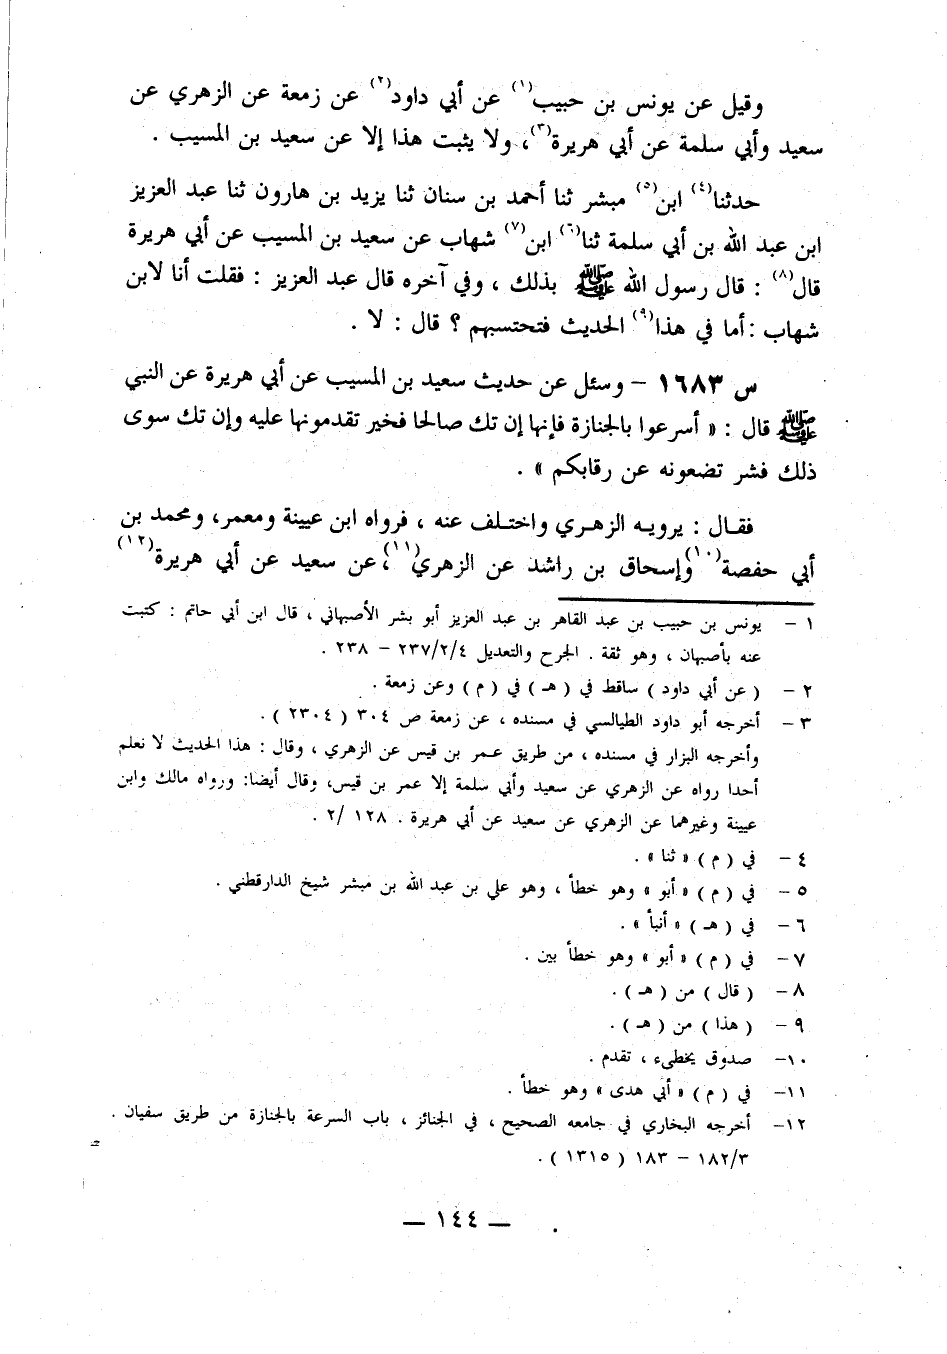 وقيل عن يونس بن حبيب(١) عن أبي داود(٢) عن زمعة عن الزهري عن
سعيد وأبي سلمة عن أبي هريرة(٣)، ولا يثبت هذا إلا عن سعيد بن المسيب .
حدثنا(٤) ابن(٥) مبشر ثنا أحمد بن سنان ثنا يزيد بن هارون ثنا عبد العزيز
ابن عبد الله بن أبي سلمة ثنا(٦) ابن(٧) شهاب عن سعيد بن المسيب عن أبي هريرة
قال(٨) : قال رسول الله ﷺ بذلك ، وفي آخره قال عبد العزيز : فقلت أنا لابن
شهاب : أما في هذا(٩) الحديث فتحتسبهم ؟ قال : لا .
س ١٦٨٣ – وسئل عن حديث سعيد بن المسيب عن أبي هريرة عن النبي
ﷺ قال : « أسرعوا بالجنازة فإنها إن تك صالحا فخير تقدمونها عليه وإن تك سوى
ذلك فشر تضعونه عن رقابكم » .
فقال : يرويه الزهري واختلف عنه ، فرواه ابن عيينة ومعمر، ومحمد بن
أبي حفصة(١٠) وإسحاق بن راشد عن الزهري(١١)، عن سعيد عن أبي هريرة(١٢)
١ – يونس بن حبيب بن عبد القاهر بن عبد العزيز أبو بشر الأصبهاني ، قال ابن أبي حاتم : كتبت
عنه بأصبهان ، وهو ثقة . الجرح والتعديل ٢٣٧/٢/٤ – ٢٣٨ .
٢ – ( عن أبي داود ) ساقط في ( هـ ) في ( م ) وعن زمعة .
٣ – أخرجه أبو داود الطيالسي في مسنده ، عن زمعة ص ٣٠٤ ( ٢٣٠٤ ) .
وأخرجه البزار في مسنده ، من طريق عمر بن قيس عن الزهري ، وقال : هذا الحديث لا نعلم
أحدا رواه عن الزهري عن سعيد وأبي سلمة إلا عمر بن قيس، وقال أيضا: ورواه مالك وابن
عيينة وغيرهما عن الزهري عن سعيد عن أبي هريرة . ١٢٨ /٢ .
٤ – في ( م ) « ثنا » .
٥ – في ( م ) « أبو » وهو خطأ ، وهو علي بن عبد الله بن مبشر شيخ الدارقطني .
٦ – في ( هـ ) « أنبأ » .
٧ – في ( م ) « أبو » وهو خطأ بين .
٨ – ( قال ) من ( هـ ) .
٩ – ( هذا ) من ( هـ ) .
١٠– صدوق يخطيء ، تقدم .
١١– في ( م ) « أبي هدى » وهو خطأ .
١٢– أخرجه البخاري في جامعه الصحيح ، في الجنائز ، باب السرعة بالجنازة من طريق سفيان .
١٨٢/٣ – ١٨٣ ( ١٣١٥ ) .
– ١٤٤ –